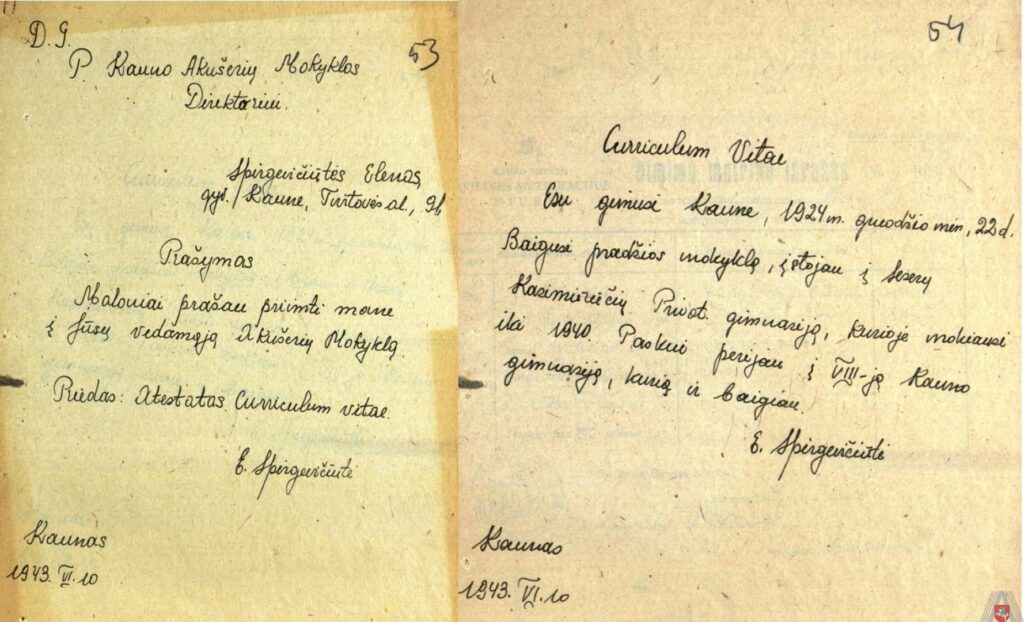 D. G.
53
P. Kauno Akušerių Mokyklos
Direktoriui.
Spirgevičiūtės Elenos,
gyv. Kaune, Tvirtovės al., 96
Prašymas
Maloniai prašau priimti mane
į Jūsų vedamąją Akušerių Mokyklą.
Priedas: Atestatas, Curriculum vitae.
E. Spirgevičiūtė
Kaunas
1943. VI. 10
54
Curriculum Vitae
Esu gimusi Kaune, 1924 m. gruodžio mėn. 22 d.
Baigusi pradžios mokyklą, įstojau į Seserų
Kazimieriečių Privat. gimnaziją, kurioje mokiausi
iki 1940. Paskui perėjau į VIII-ją Kauno
gimnaziją, kurią ir baigiau.
E. Spirgevičiūtė
Kaunas
1943. VI. 10